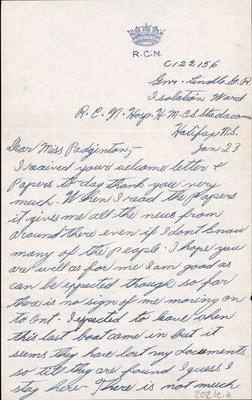 R.C.N.
C122156
Gnr. Lindlo G. A
Isolation Ward
R.C.N. Hosp. H.M.C.S Stadacona
Halifax N.S.
Jan 23
Dear Miss Padginton,-
I received your welcome letter &
Papers to day thank you very
much. When I read the Papers
it gives me all the news from
around there even if I dont know
many of the people. I hope you
are well as for me I am good as
can be expected though so far
there is no sign of me moving on
to Ont. I expected to leave when
this last boat came in but it
seems they have lost my documents
so till they are found I guess I
stay here. There is not much